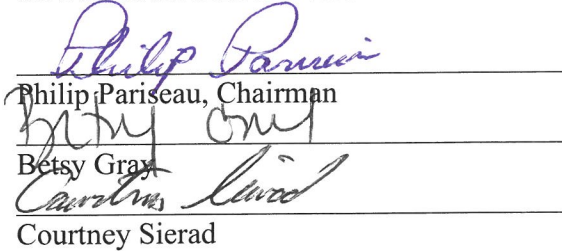 Philip Pariseau
Philip Pariseau, Chairman
Betsy Gray
Betsy Gray
Courtney Sierad
Courtney Sierad